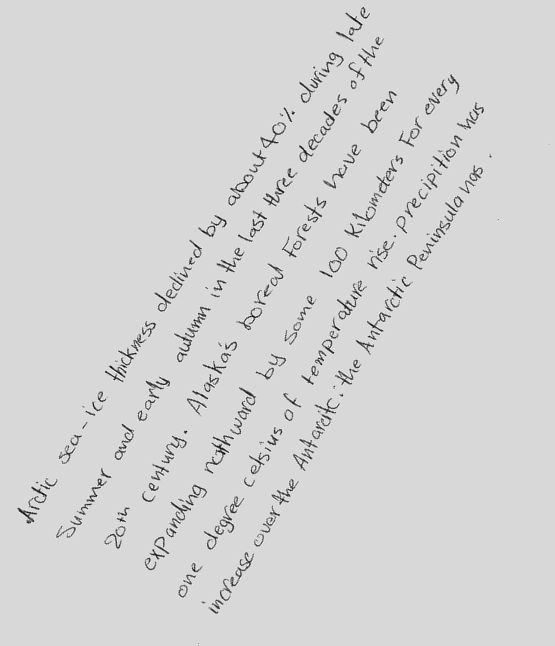 Arctic sea-ice thickness declined by about 40% during late
Summer and early autumn in the last three decades of the
20th century. Alaska's boreal Forests have been
expanding northward by some 100 Kilometers For every
one degree celsius of temperature rise. precipition has
increase over the Antarctic. the Antarctic Peninsula has.